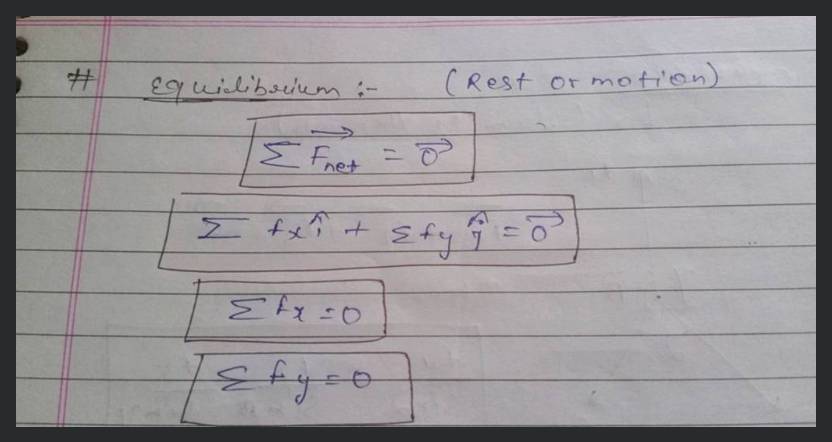 # Equilibrium :- (Rest or motion)
Σ F⃗net = 0⃗
Σ fx î + Σ fy ĵ = 0⃗
Σ fx = 0
Σ fy = 0